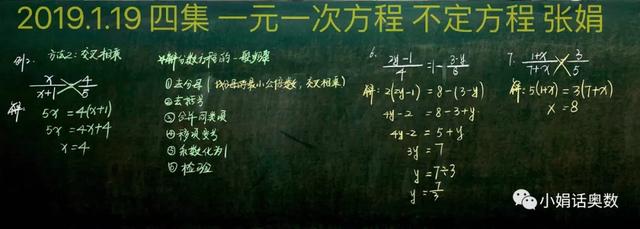 2019.1.19 四集 一元一次方程 不定方程 张娟
例2. 方法2:交叉相乘
x/(x+1) = 4/5
解: 5x = 4(x+1)
5x = 4x+4
x = 4
解分数方程的一般步骤
①去分母(找分母的最小公倍数,交叉相乘)
②去括号
③合并同类项
④移项变号
⑤系数化为1
⑥检验
6. (2y-1)/4 = 1 - (3-y)/8
解: 2(2y-1) = 8-(3-y)
4y-2 = 8-3+y
4y-2 = 5+y
3y = 7
y = 7÷3
y = 7/3
7. (1+x)/(7+x) = 3/5
解: 5(1+x) = 3(7+x)
x = 8
小娟话奥数